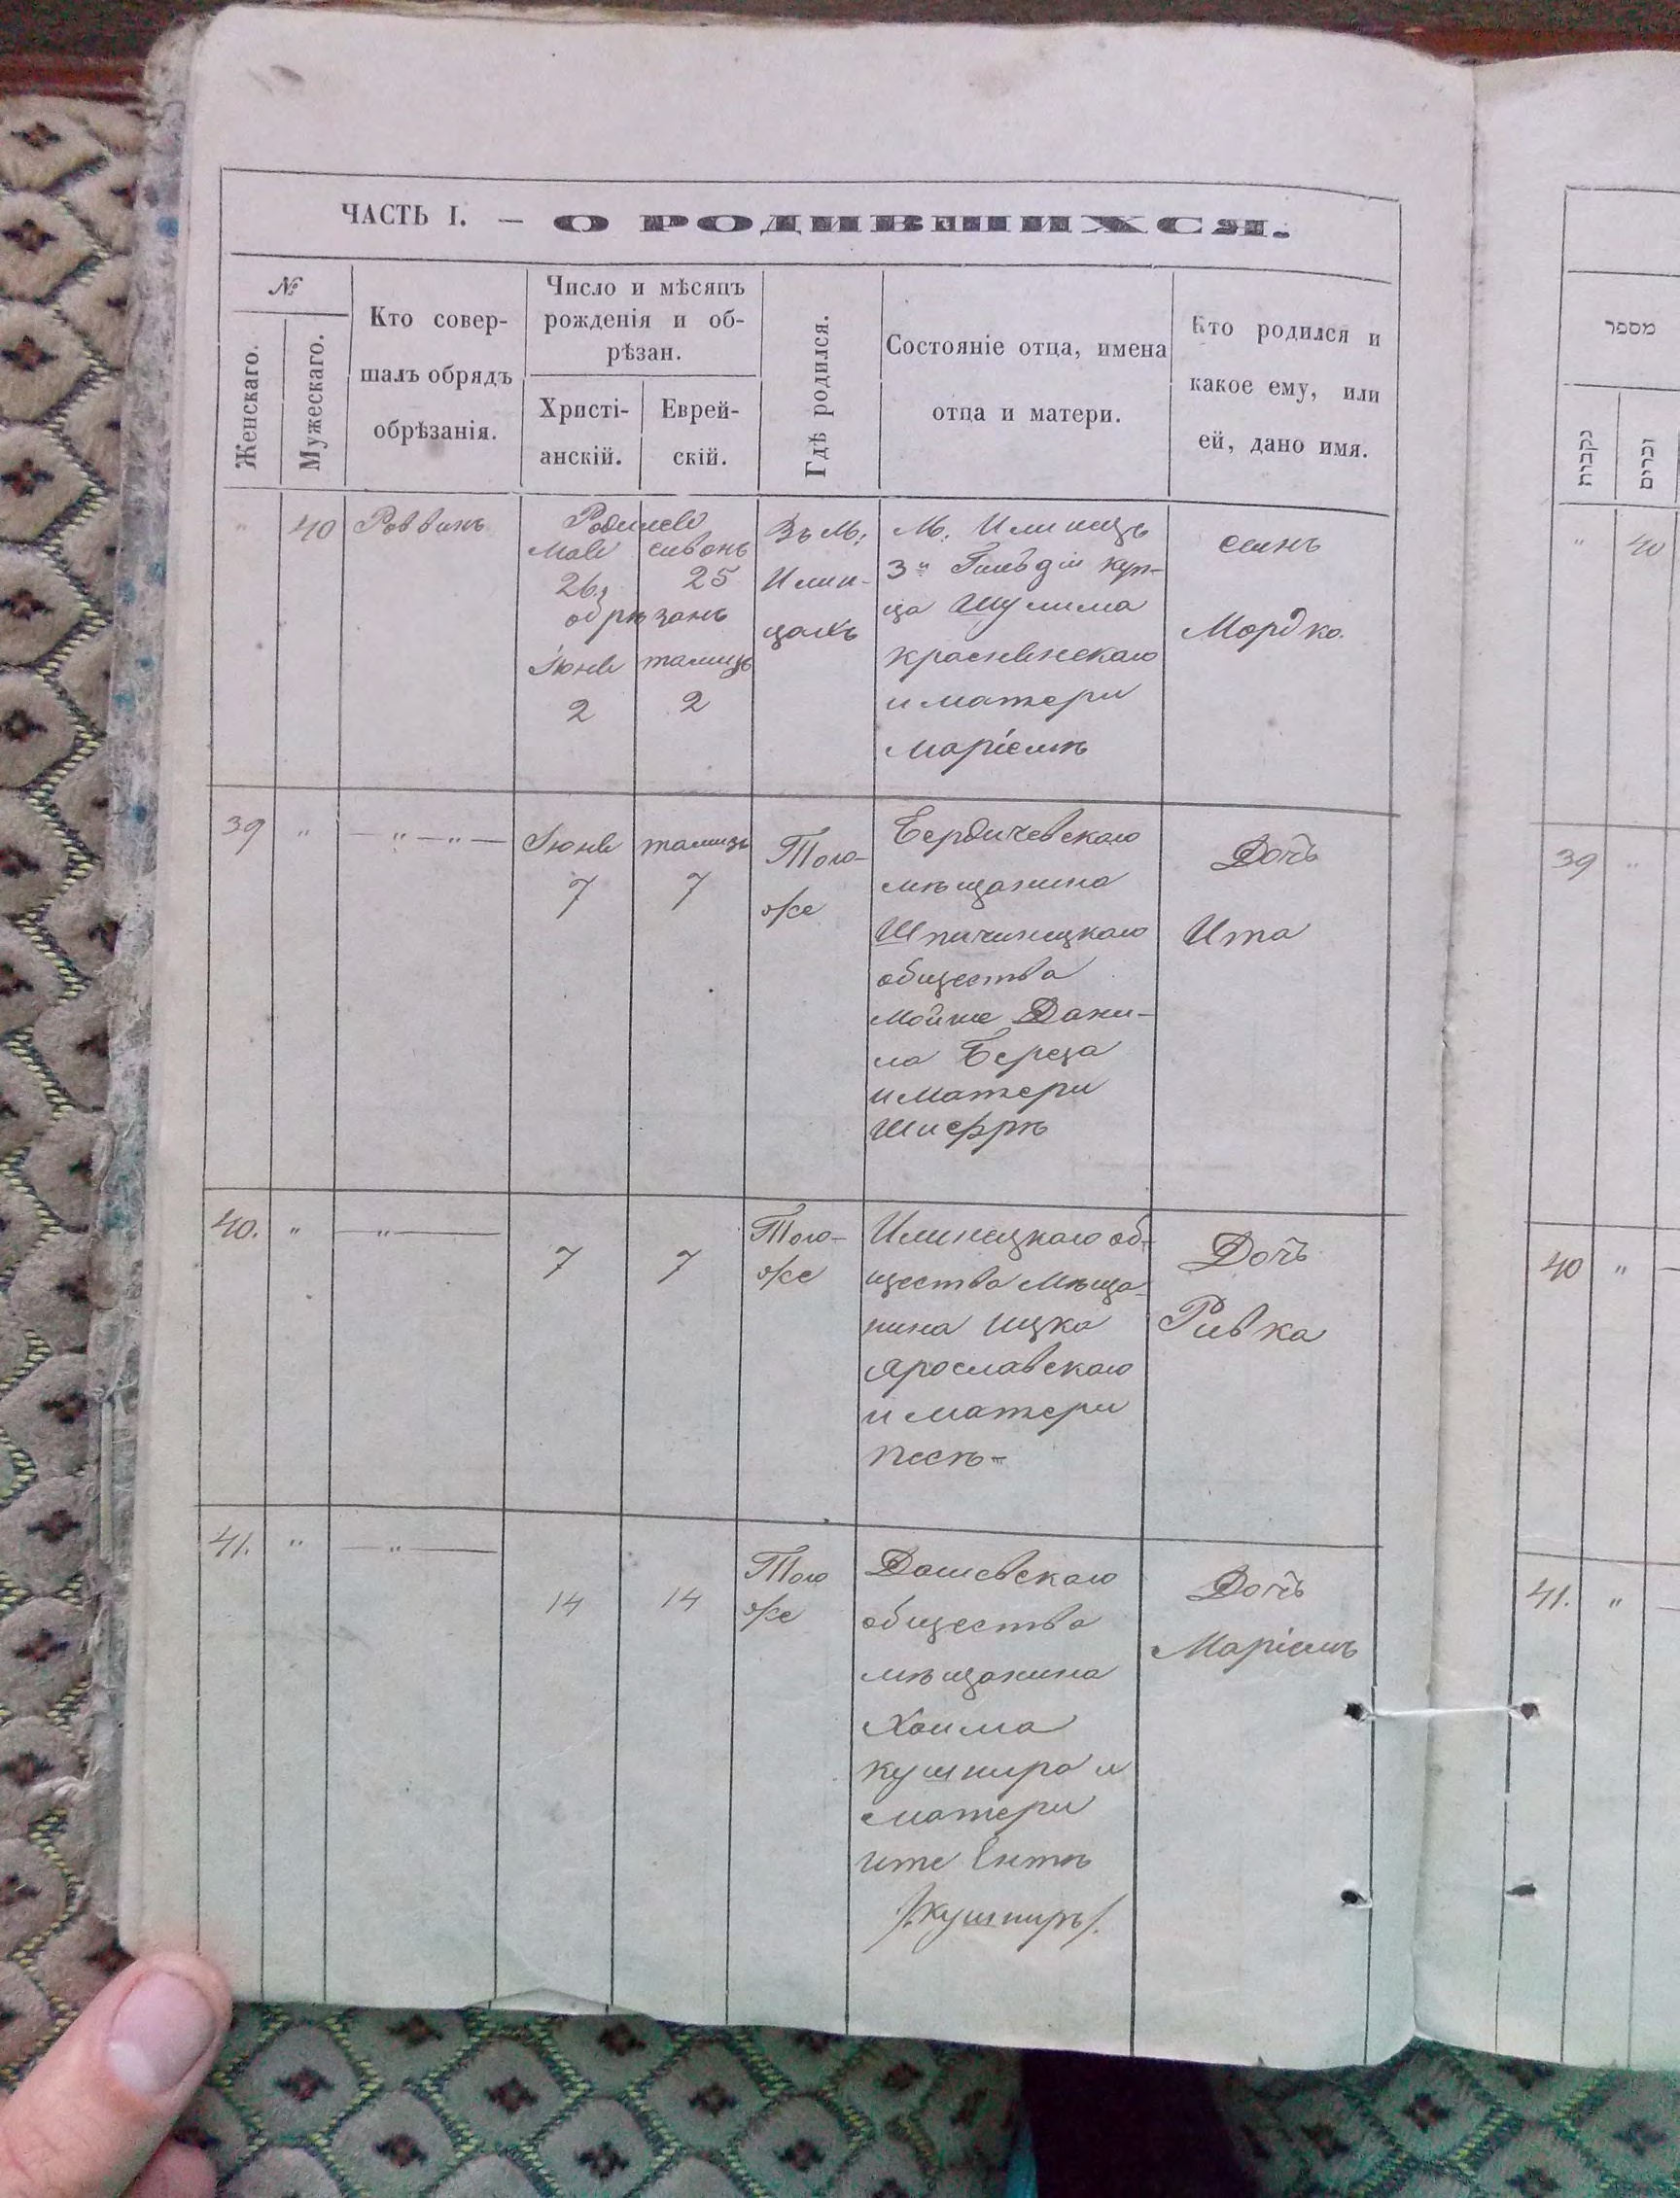 ЧАСТЬ I. — О РОДИВШИХСЯ.
№
Женскаго.
Мужескаго.
Кто совер-
шалъ обрядъ
обрѣзанія.
Число и мѣсяцъ
рожденія и об-
рѣзан.
Христі-
анскій.
Еврей-
скій.
Гдѣ родился.
Состояніе отца, имена
отца и матери.
Кто родился и
какое ему, или
ей, дано имя.
" 40 Раввинъ
Родился
Мая сивонъ
26, 25
обрѣзанъ
Іюня тамузъ
2 2
Въ М:
Илин-
цахъ
М. Илинецъ
3й Гильдіи куп-
ца Шулима
и матери
Маріемъ
сынъ
Мордко.
39 " — " — " —
Іюня тамузъ
7 7
Того-
же
Бердичевскаго
мѣщанина
Шпичинецкаго
общества
Мойше Дани-
ла Береза
и матери
Шифрѣ
Дочь
Ита
40. " — " —
7 7
Того-
же
Илинецкаго об-
щества Мѣща-
нина Ицка
Ярославскаго
и матери
Песѣ-
Дочь
Ривка
41. " — " —
14 14
Того
же
Дашевскаго
общества
мѣщанина
Хаима
кушнира и
матери
Ите Ентѣ
/:кушниръ/.
Дочь
Маріемъ
מספר
נקבות
זכרים
" 40
39 "
40 "
41. "